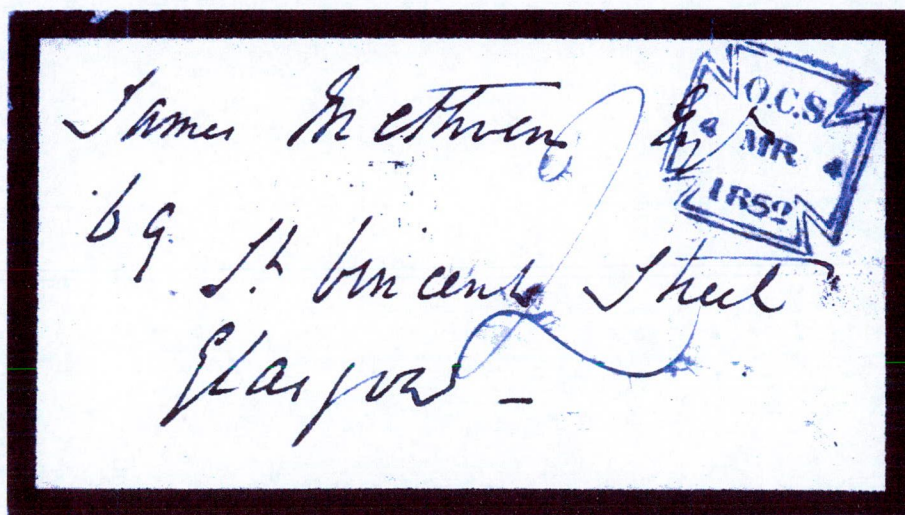 James Methven Esqr
69 St Vincent Street
Glasgow -
O.C.S
4 MR 4
1852
2